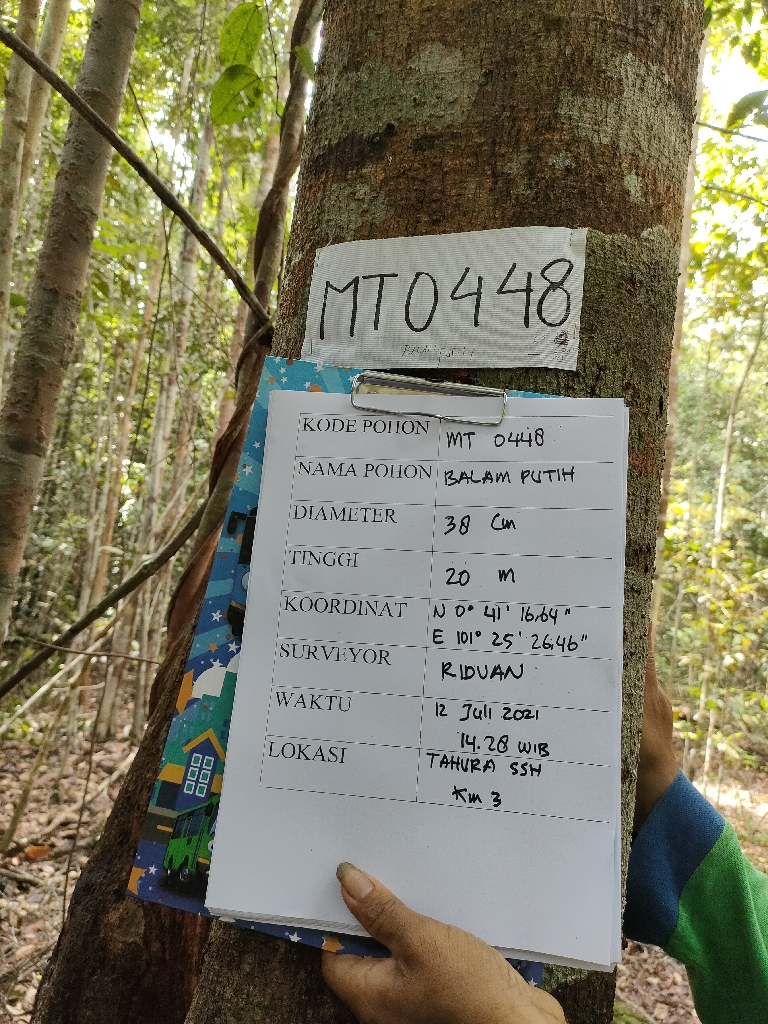 MT0448
KODE POHON MT 0448
NAMA POHON BALAM PUTIH
DIAMETER 38 Cm
TINGGI 20 m
KOORDINAT N 0° 41' 16,64"
E 101° 25' 26,46"
SURVEYOR RIDUAN
WAKTU 12 Juli 2021
14.28 WIB
LOKASI TAHURA SSH
Km 3